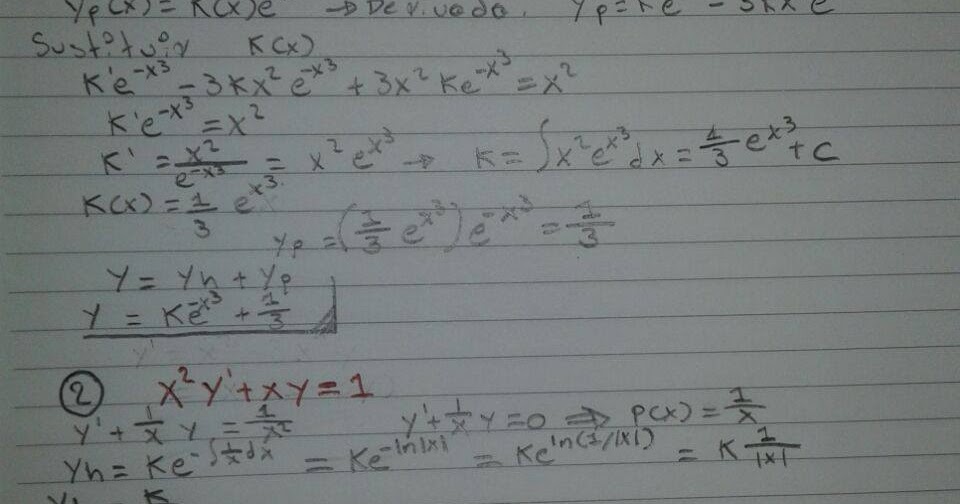 Yp(x) = K(x)e → Derivada. Yp = Ke - 3Kx e
Sustituir K(x)
K'e^-x³ - 3Kx² e^-x³ + 3x² Ke^-x³ = x²
K'e^-x³ = x²
K' = x²/e^-x³ = x² e^x³ → K = ∫x² e^x³ dx = 1/3 e^x³ + C
K(x) = 1/3 e^x³.
Yp = (1/3 e^x³) e^-x³ = 1/3
Y = Yh + Yp
Y = Ke^-x³ + 1/3
② x² y' + xy = 1
y' + 1/x y = 1/x² y' + 1/x y = 0 ⇒ P(x) = 1/x
Yh = Ke^-∫1/x dx = Ke^-ln|x| = Ke^ln(1/|x|) = K 1/|x|